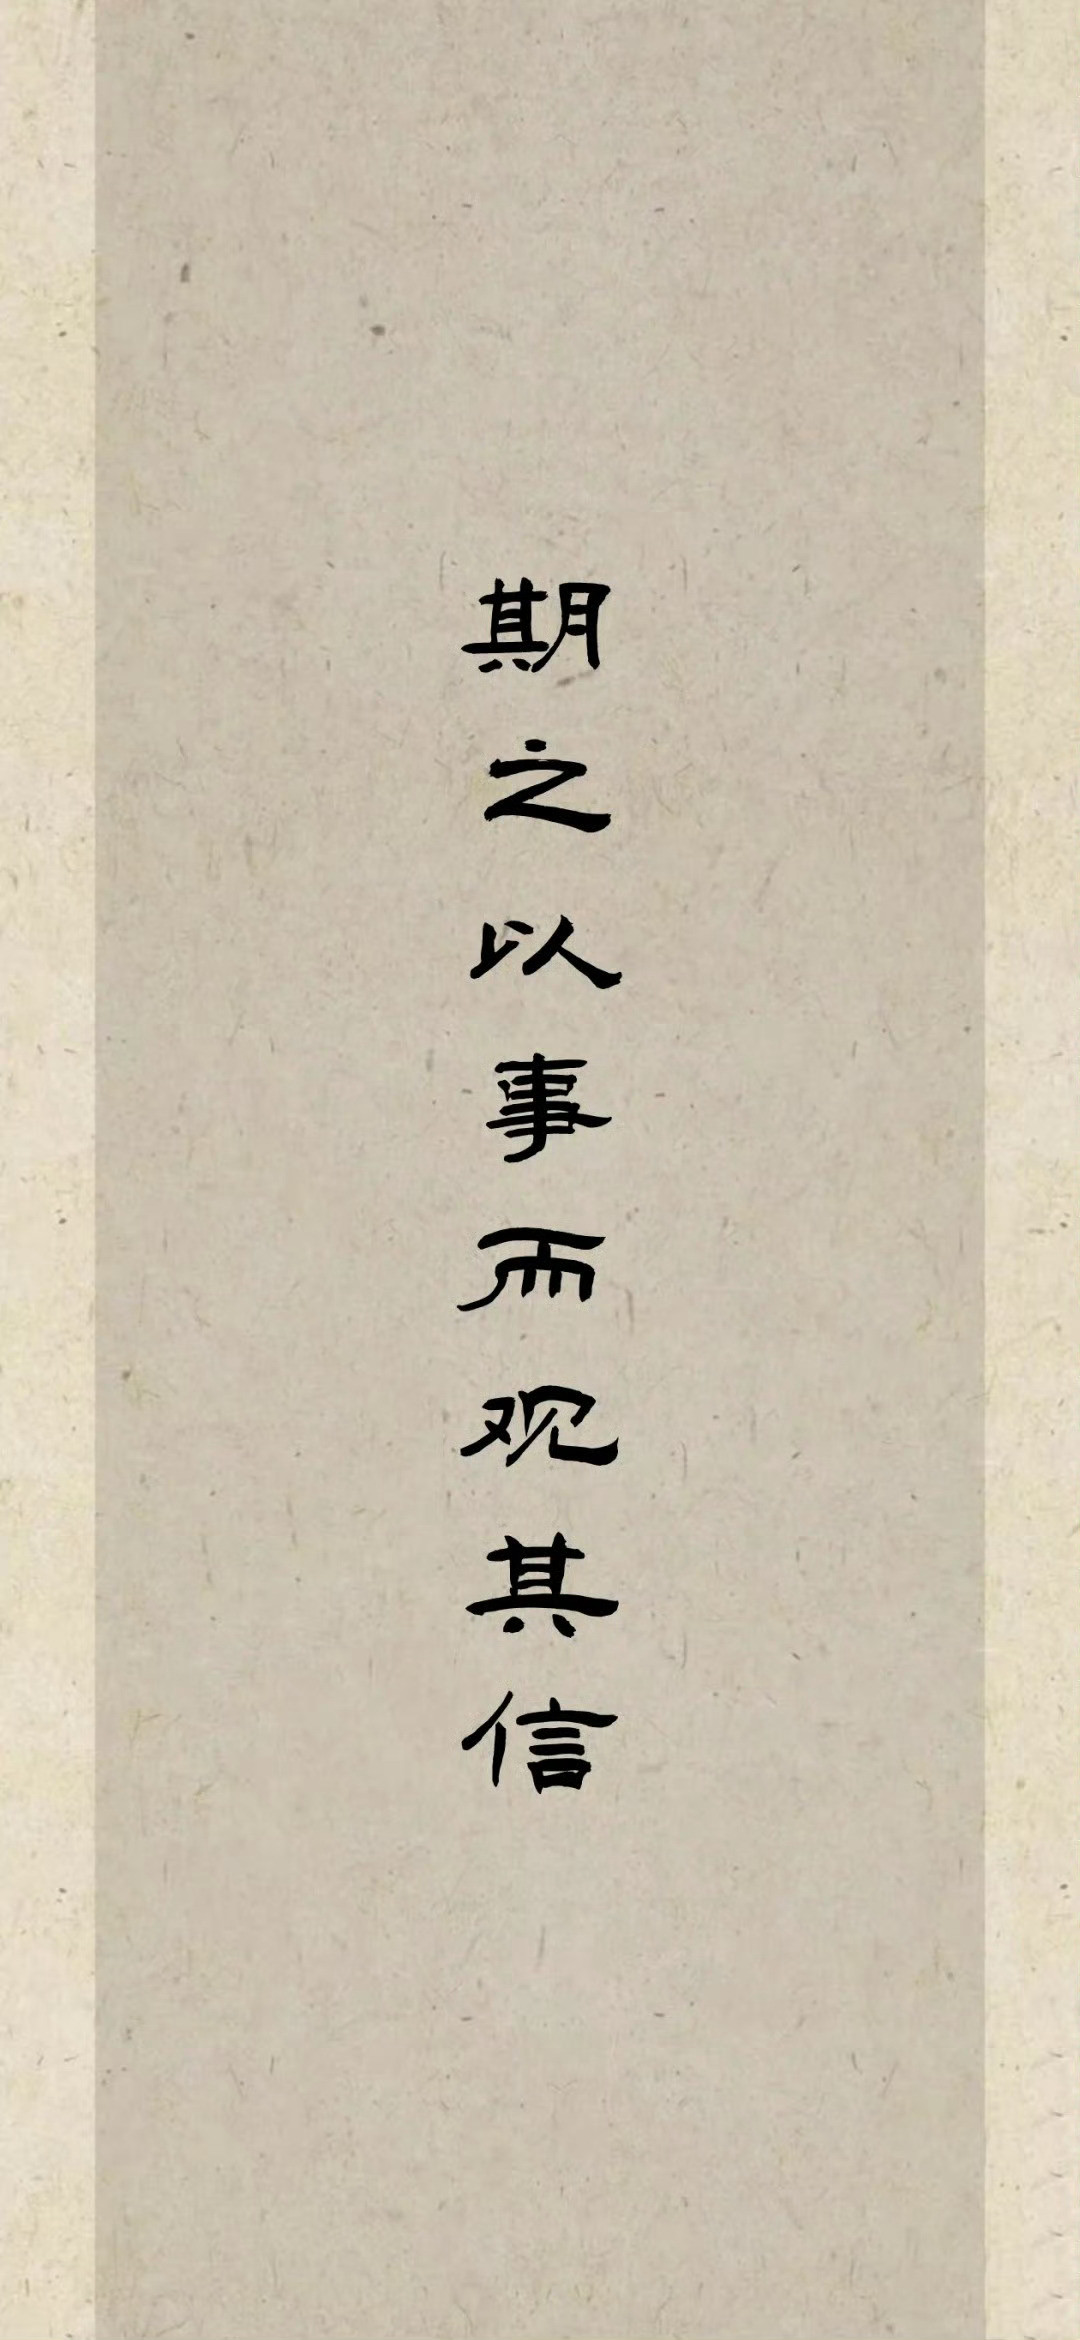 期之以事而观其信